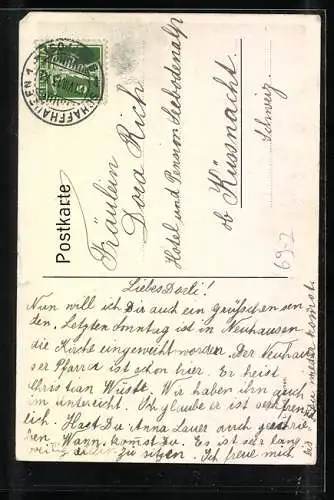 SCHAFFHAUSEN 1
Postkarte
Fräulein
Dora Rich
Hotel und Pension Seebodenalp
ob Küssnacht
Schweiz.
69-2
Liebes Dorli!
Nun will ich Dir auch ein grüsschen sen
den, Letzten Sonntag ist in Neuhausen
die Kirche eingeweiht worden. Der Neuhau
ser Pfarrer ist schon hier. Er heist
Christian Wust. Wir haben ihn auch
im unterricht. Ich glaube er ist sehr freund
lich. Hast Du Anna Lauer auch geschrie
ben. Wann kommst Du. Es ist sehr lang
weilig zu sitzen. Ich freue mich
bis Du wieder kommst.